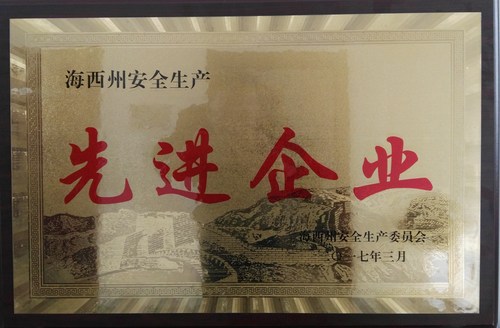 海西州安全生产
先进企业
海西州安全生产委员会
一七年三月